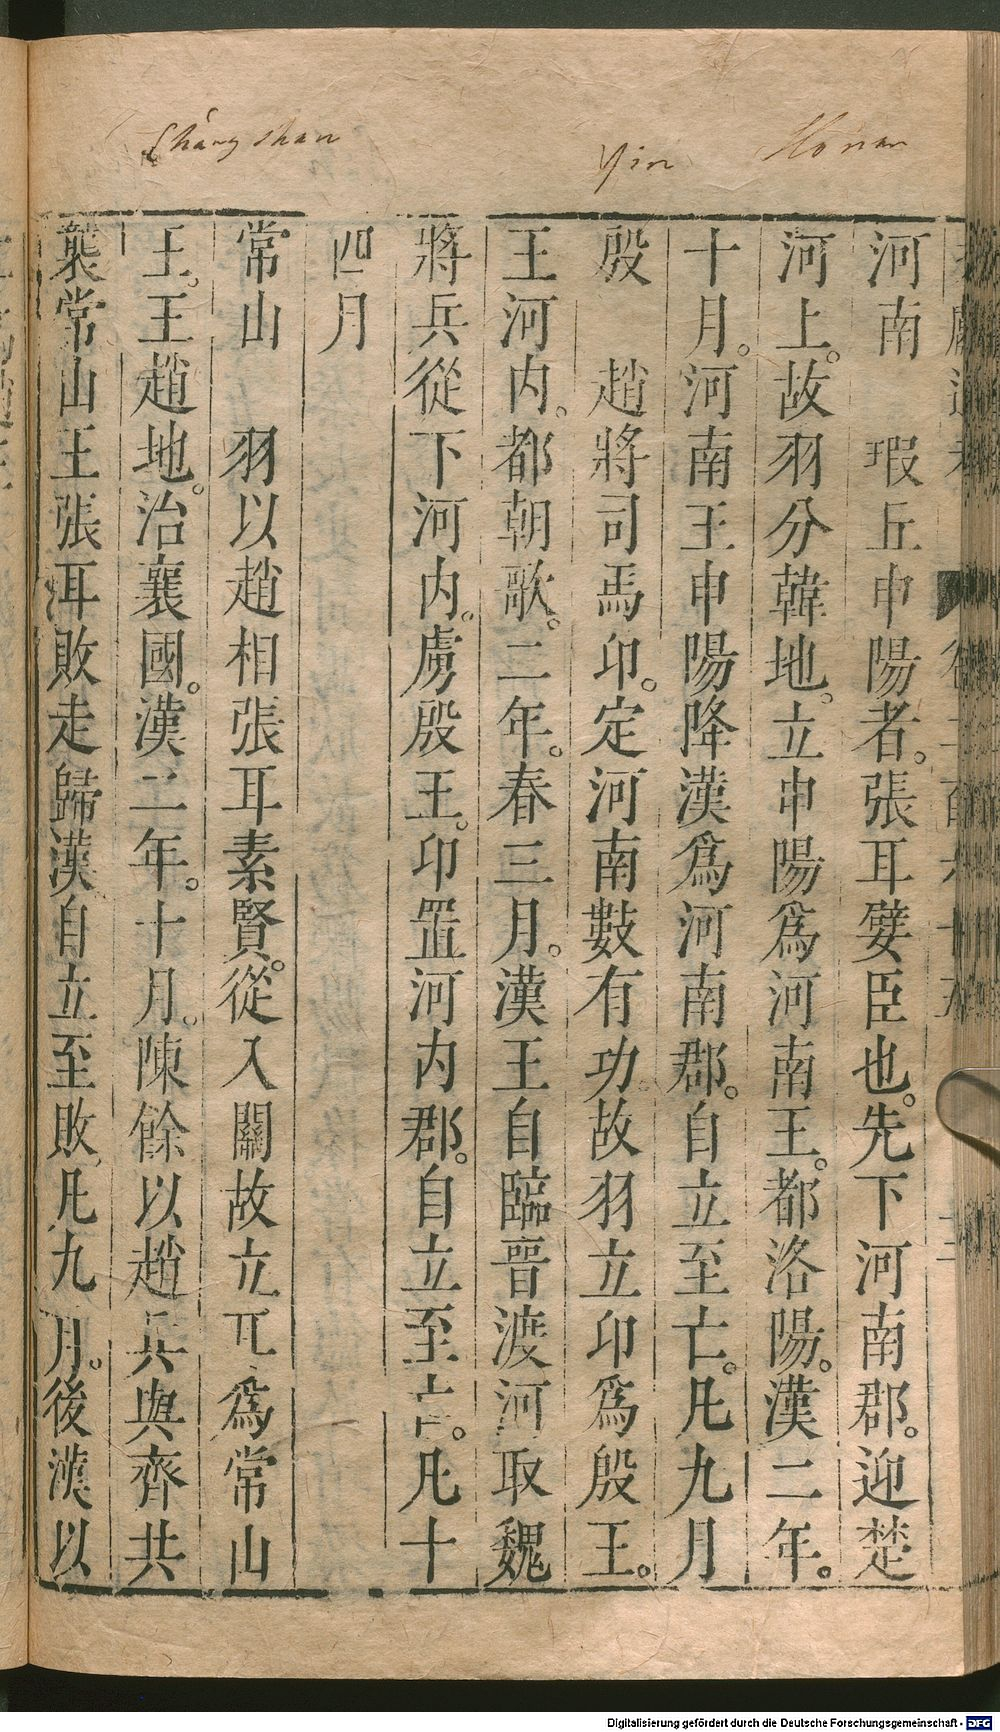 Chang shan
Yin
Honan
河南 瑕丘申陽者。張耳嬖臣也。先下河南郡。迎楚
河上。故羽分韓地。立申陽爲河南王。都洛陽。漢二年。
十月。河南王申陽降漢爲河南郡。自立至亡。凡九月
殷 趙將司馬卬。定河南數有功故羽立卬爲殷王。
王河内。都朝歌。二年。春三月。漢王自臨晉渡河取魏
將兵從下河内。虜殷王。卬置河内郡。自立至亡。凡十
四月
常山 羽以趙相張耳素賢。從入關故立耳爲常山
王。王趙地。治襄國。漢二年。十月。陳餘以趙兵與齊共
襲常山王張耳敗走歸漢自立至敗凡九月。後漢以
Digitalisierung gefördert durch die Deutsche Forschungsgemeinschaft - DFG